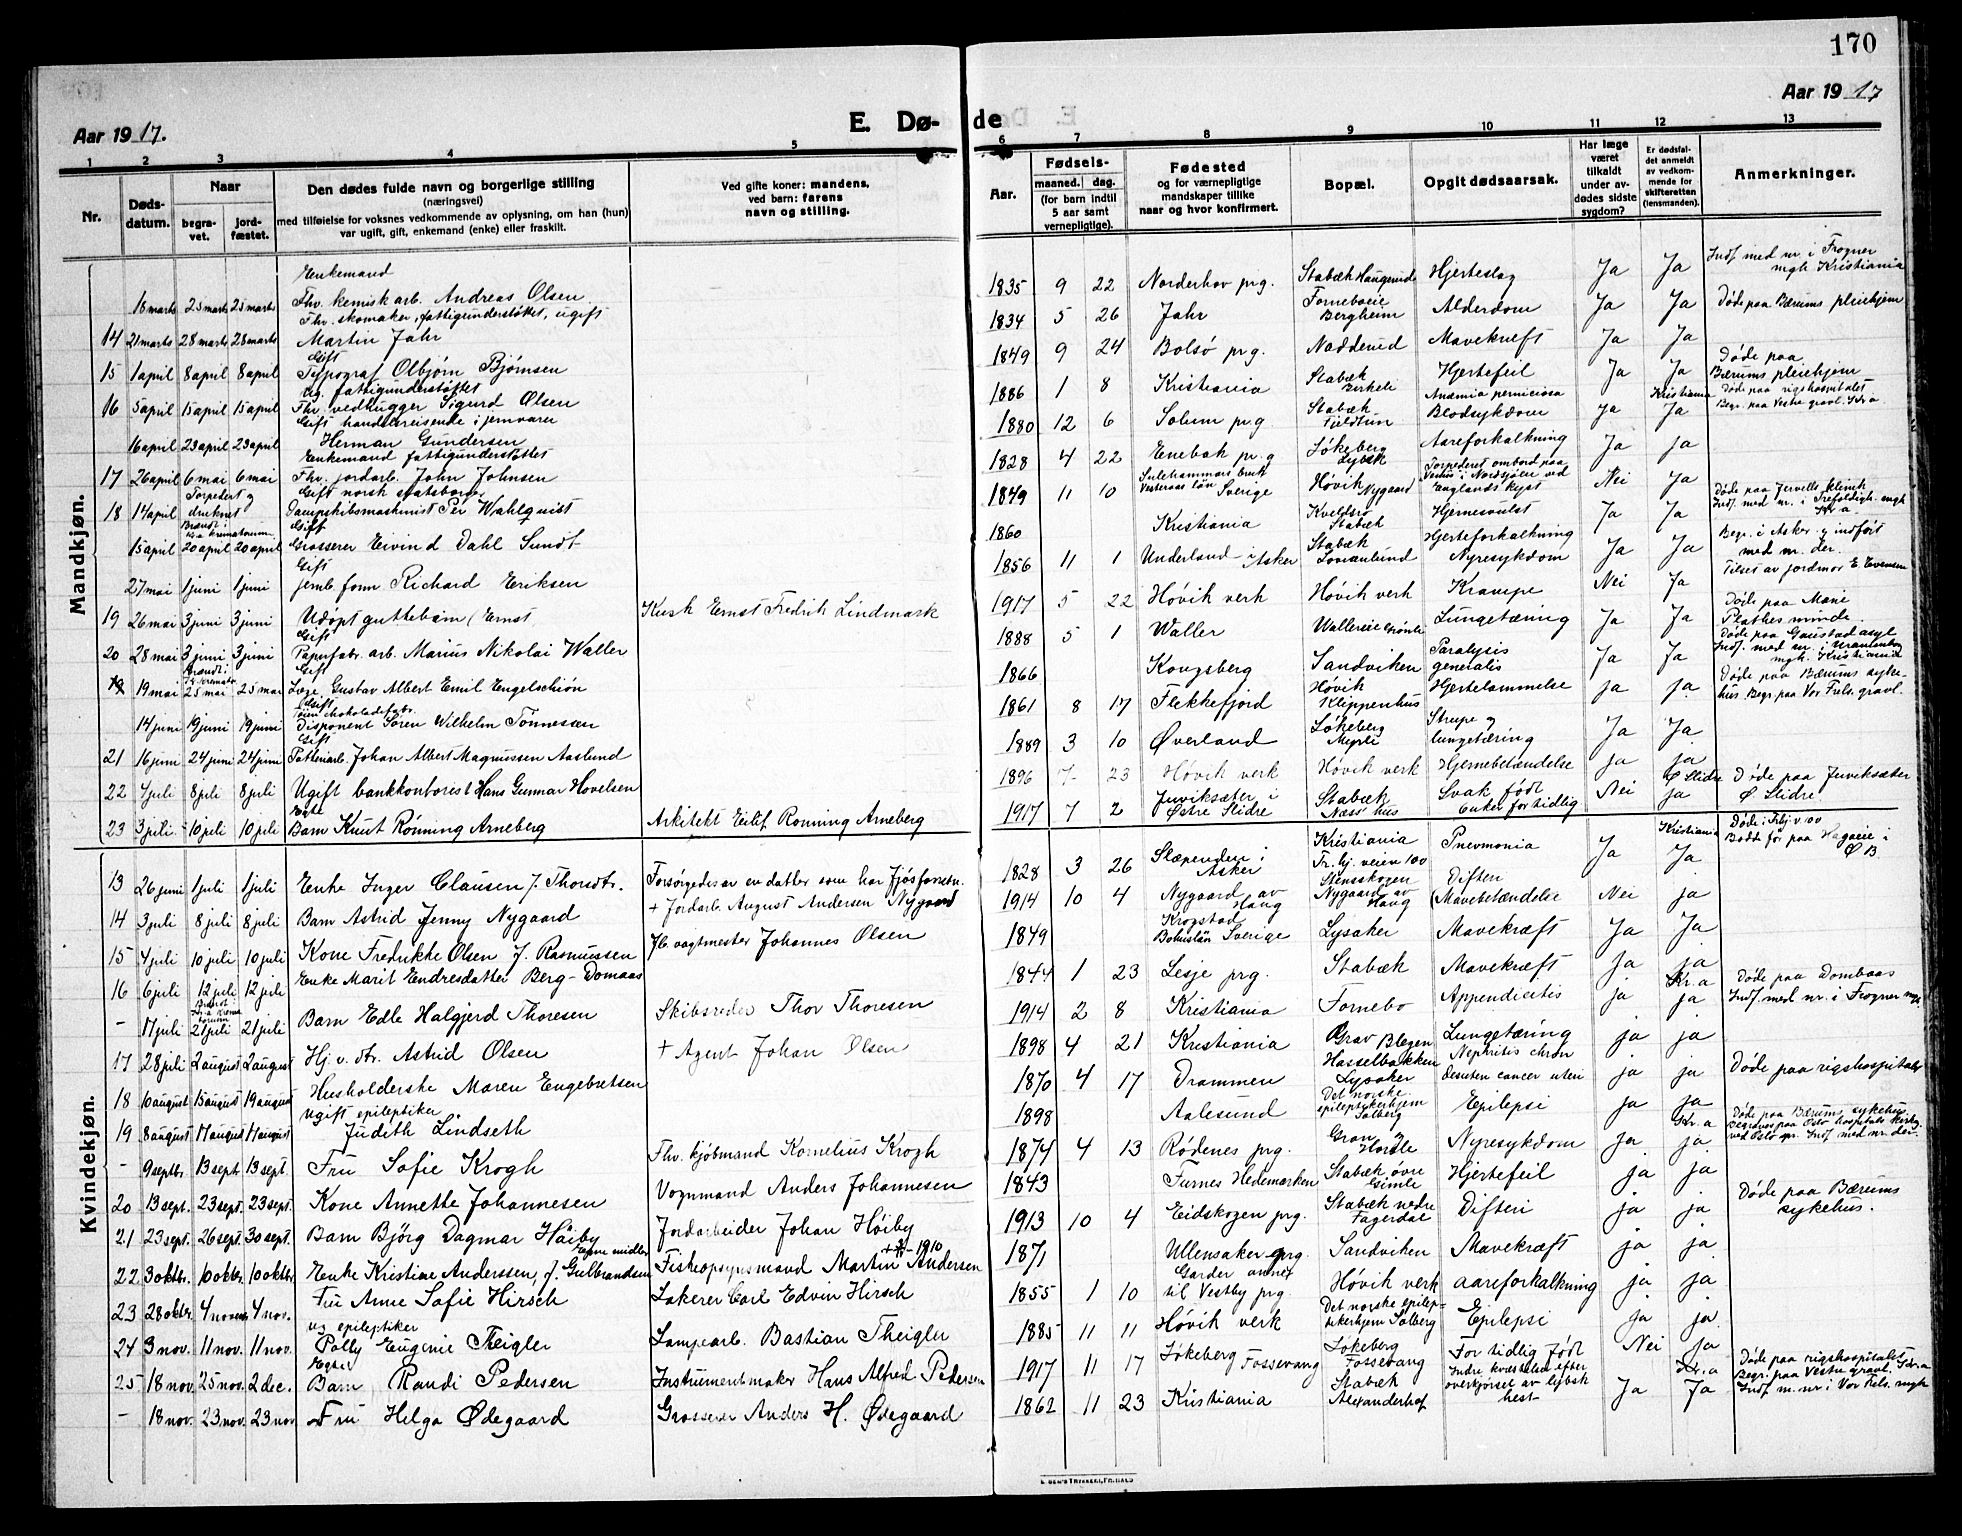 170
Aar 1917.
E. Dø- de
Aar 1917
1 2 3 4 5 6 7 8 9 10 11 12 13
Nr.
Døds-
datum.
Naar
begra-
vet.
jord-
fæstet.
Den dødes fulde navn og borgerlige stilling
(næringsvei)
med tilføielse for voksnes vedkommende av oplysning, om han (hun)
var ugift, gift, enkemand (enke) eller fraskilt.
Ved gifte koner: mandens,
ved barn: farens
navn og stilling.
Aar.
Fødsels-
maaned. dag.
(for barn indtil
5 aar samt
vernepligtige).
Fødested
og for værnepligtige
mandskaper tillike
naar og hvor konfirmert.
Bopæl.
Opgit dødsaarsak.
Har læge
været
tilkaldt
under av-
dødes sidste
sygdom?
Er dødsfal-
det anmeldt
av vedkom-
mende for
skifteretten
(lensmanden).
Anmerkninger.
Mandkjøn.
Enkemand
18 marts 25 marts 25 marts Fhv. kemisk arb. Andreas Olsen 1835 9 22 Norderhov prg. Stabæk Haugende Hjerteslag Ja Ja Indf med nr. i Frogner
mgh. Kristiania
Fhv. skomaker, fattigunderstøttet, ugift
14 21 marts 28 marts 28 marts Martin Jahr 1834 5 26 Jahr Forneboeie
Bergheim Alderdom Ja Ja Døde paa Bærums pleiehjem
Gift
15 1 april 8 april 8 april Typograf Olbjørn Bjørnsen 1849 9 24 Bolsø prg. Nadderud Mavekræft Ja Ja
Ug. fattigunderstøttet
16 5 april 15 april 15 april Fhv. vedhugger Sigurd Olsen 1886 1 8 Kristiania Stabæk
Birkeli Hjertefeil Ja Ja Døde paa
Bærums pleiehjem
Gift handelsreisende i jernvarer
16 april 23 april 23 april Herman Gundersen 1880 12 6 Solum prg Stabæk
Anæmia perniciosa
Blodsykdom Ja Kristiania
Ja Døde paa rigshospitalet
Begr. paa Vestre gravl. Kr.a
Enkemand fattigunderstøttet
17 26 april 6 mai 6 mai Fhv. jordarb. John Johnsen 1828 4 22 Enebak pr.g Løkeberg
Aareforkalkning Ja ja
Gift norsk statsborger
18 14 april Torpedert og
druknet Dampskibsmaskinist Per Wahlquist 1849 11 10 Sverige Høvik
Nygaard Torpederet ombord paa
i Nordsjøen ved
Englands kyst Nei Ja
Gift
15 april Brændt i
Kr.a krematorium
20 april 20 april Grosserer Eivind Dahl Sundt 1860 Kristiania
Stabæk Hjernesvulst Ja Ja Døde paa klinik
Indf. med nr. i Trefoldigh. mgh
Kr.a
Gift
27 mai 1 juni 1 juni jernb. form Richard Eriksen 1856 11 1 Underland i Asker Stabæk
Hjerteforkalkning
Nyresykdom Ja Ja Begr. i Asker og indført
med nr. der.
19 26 mai 3 juni 3 juni Udøpt guttebarn (Ernst Kusk Ernst Fredrik Lindmark 1917 5 22 Høvik verk Høvik verk Krampe Nei Ja Tilset av jordmor E. Evensen
Gift
20 28 mai 3 juni 3 juni Papirfabr. arb. Marius Nikolai Waller 1888 5 1 Waller Wallereie Grønli Lungetæring Ja Ja Døde paa Marie
Plathes minde.
Gift
19 mai Brændt i
25 mai 25 mai Læge Gustav Albert Emil Engelschiøn 1866 Kongsberg Sandviken Paralysis
generalis Ja Ja Døde paa Gaustad asyl
Indf. med nr. i Uranienborg
mgh. Kristiania
Gift
14 juni 19 juni 19 juni Disponent Søren Wilhelm Tønnesen 1861 8 17 Flekkefjord Høvik
Klippenhus Hjertelammelse ja Ja Døde paa Bærums syke-
hus. Begr. paa Vor Frels. gravl.
Gift
21 16 juni 24 juni 24 juni Johan Albert Magnussen Aaslund 1889 3 10 Øverland Løkeberg
Myrli Strupe og
lungetæring Ja Ja
22 4 juli 8 juli 8 juli Ugift bankkontorist Hans Gunnar Hovelsen 1896 7 23 Høvik verk Høvik verk Hjernebetændelse Ja ja
Egte
23 3 juli 10 juli 10 juli Barn Knut Rønning Arneberg Arkitekt Eilif Rønning Arneberg 1917 7 2 Juviksæter i
Østre Slidre Stabæk
Næss hus Svak født
for tidlig Nei Ø Slidre
ja Døde paa Juviksæter
Ø. Slidre
Kvindekjøn.
13 26 juni 1 juli 1 juli Enke Inger Clausen f. Thorsdtr. Forsørgedes av en datter som har 1828 3 26 Slæpenden i
Asker Kristiania
Fr. hj. veien 100 Pnevmonia Ja Kristiania
Ja Døde i Frhj.v 100
Bodde før paa Hagaeie i
Ø B.
14 3 juli 8 juli 8 juli Barn Astrid Jenny Nygaard + Jordarb. August Andersen Nygaard 1914 10 4 Nygaard av
Haug Stensskogen
Nygaard av
Haug Difteri
(Mavebetændelse Nei ja
15 4 juli 10 juli 10 juli Kone Fredrikke Olsen f. Rasmussen Jb. vagtmester Johannes Olsen 1849 Krogstad
Bohuslän Sverige Lysaker Mavekræft Ja Ja
16 6 juli 12 juli 12 juli Enke Marit Endresdatter Berg-Domaas 1844 1 23 Lesje prg. Stabæk Mavekræft Ja ja
- 17 juli Brændt i
21 juli 21 juli Barn Edle Halgjerd Thoresen Skibsreder Thor Thoresen 1914 2 8 Kristiania Fornebo Appendicitis ja Kr.a
ja Døde paa Dombaas
Indf. med nr. i Frogner mgh.
17 28 juli 2 august 2 august Hj. v. dtr. Astrid Olsen + Agent Johan Olsen 1898 4 21 Kristiania Grav Blegen Lungetæring ja ja
18 10 august 15 august 19 august Husholderske Maren Engebretsen 1870 4 17 Drammen Hasselbakken
Lysaker Nephritis chron
desuten cancer uteri ja ja Døde paa rigshospitalet
ugift epileptiker
19 8 august 17 august 17 august Judith Lindseth 1898 Aalesund Det norske
epileptikerhjem
Solberg Epilepsi ja ja
- 9 septbr. 13 sept. 13 sept. Fru Sofie Krogh Fhv. kjøbmand Kornelius Krogh 1874 4 13 Rødenes prg. Nyresykdom Ja Kr.a
ja Døde paa Bærums sykehus
Begravet paa Oslo hospitals kirkeg.
ved Oslo Indf. med nr. der.
20 13 sept. 23 sept. 23 sept. Kone Annette Johannesen Vognmand Anders Johannesen 1843 Furnes Hedemarken Stabæk øvre
Gimle Hjertefeil ja ja
21 23 sept. 26 sept. 30 sept. Barn Bjørg Dagmar Høiby Jordarbeider Johan Høiby 1913 10 4 Eidskogen prg. Stabæk nedre
Fagerdal Difteri ja ja Døde paa Bærums
sykehus.
Egne midler + 1910
22 3 oktbr. 10 oktbr. 10 oktbr. Enke Kristine Anderssen, f. Gulbrandsen Fiskeopsynsmand Martin Andersen 1871 Ullensaker prg. Sandviken Mavekræft ja ja
23 28 oktbr. 4 novem 4 nov. Fru Anne Sofie Hirsch Lakerer Carl Edvin Hirsch 1855 1 10 Garder annex
til Vestby prg. Høvik verk aareforkalkning ja ja
ug epileptiker
24 3 nov. 11 nov. 11 nov. Polly Eugenie Theigler Lampearb. Bastian Theigler 1885 11 11 Høvik verk Det norske epilep-
tikerhjem Solberg Epilepsi ja ja.
Egte
25 18 nov. 25 nov. 2 dec. Barn Randi Pedersen Instrumentmaker Hans Alfred Pedersen 1917 11 17 Løkeberg Fossevang Løkeberg
Fossevang For tidlig født Nei Ja
- 18 nov. 23 nov. 23 nov Fru Helga Ødegaard Grosserer Anders H. Ødegaard 1862 11 23 Kristiania Stabæk
Alexanderhof Indre kvæstelser efter
overkjørsel av løbsk
hest Ja Kr.a
Ja Døde paa rigshospitalet
Begr. paa Vestre gravl. Kr.a
Indf. m. nr i Vor Frels. mgh